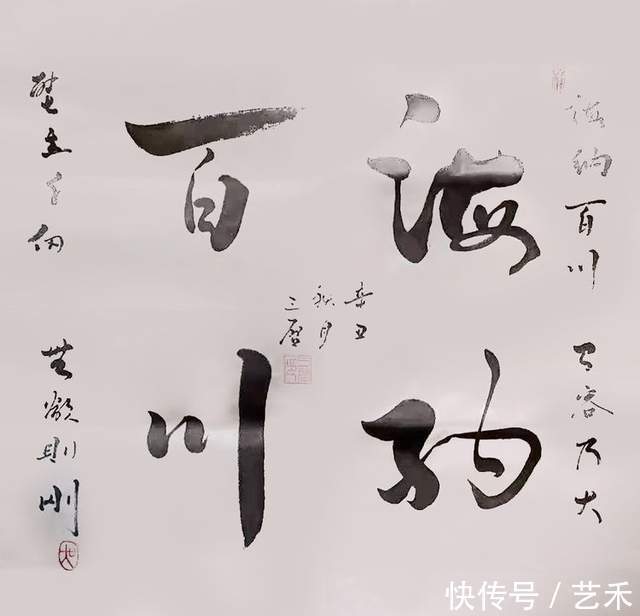 海纳百川 有容乃大
海纳
百川
辛丑
秋月
三
壁立千仞 無欲則刚
快传号 / 艺禾